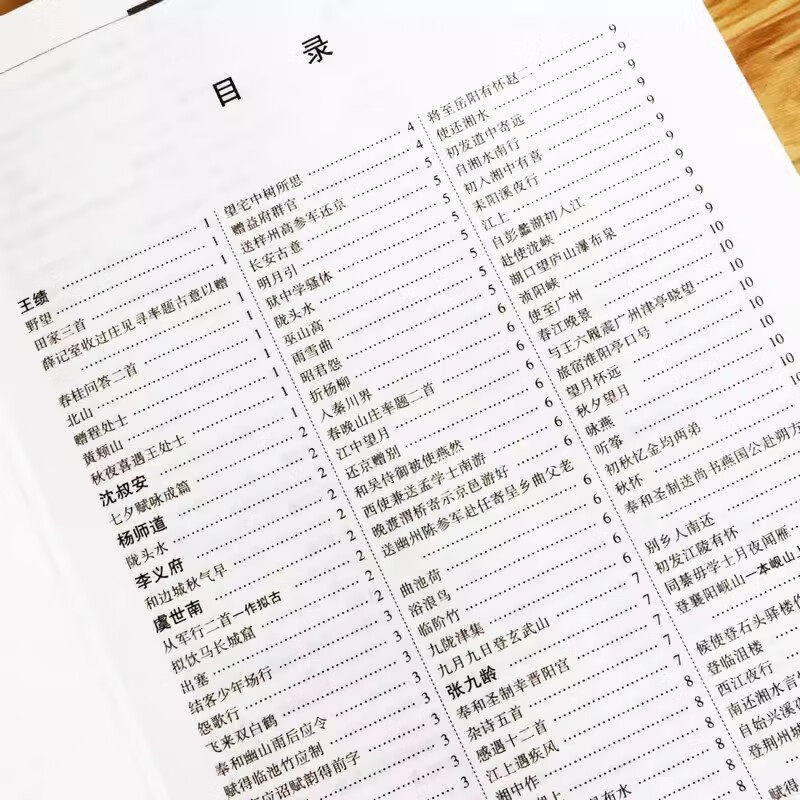 目 录
王绩 1
野望 1
田家三首 1
薛记室收过庄见寻率题古意以赠
春桂问答二首 1
北山 1
赠程处士 1
黄颊山 1
秋夜喜遇王处士 2
沈叔安 2
七夕赋咏成篇 2
杨师道 2
陇头水 2
李义府 2
和边城秋气早 2
虞世南
从军行二首一作拟古 2
拟饮马长城窟 3
出塞 3
结客少年场行 3
怨歌行 3
飞来双白鹤
奉和幽山雨后应令
赋得临池竹应制
应诏赋韵得前字
望宅中树所思 4
赠益府群官 4
送梓州高参军还京 5
长安古意 5
明月引 5
狱中学骚体 5
陇头水 5
巫山高 5
雨雪曲 5
昭君怨 6
折杨柳 6
入秦川界 6
春晚山庄率题二首 6
江中望月 6
还京赠别 6
和吴侍御被使燕然
西使兼送孟学士南游
晚渡渭桥寄示京邑游好 6
送幽州陈参军赴任寄呈乡曲父老
曲池荷 6
浴浪鸟 6
临阶竹 7
九陇津集 7
九月九日登玄武山 7
张九龄 7
奉和圣制幸晋阳宫 8
杂诗五首 8
感遇十二首 8
江上遇疾风
湘中作
将至岳阳有怀赵二 9
使还湘水 9
初发道中寄远 9
自湘水南行 9
初入湘中有喜 9
耒阳溪夜行 9
江上 9
自彭蠡湖初入江 9
赴使泷峡 10
湖口望庐山瀑布泉 10
浈阳峡 10
使至广州 10
春江晚景 10
与王六履震广州津亭晓望 10
旅宿淮阳亭口号
望月怀远
秋夕望月
咏燕
听筝
初秋忆金均两弟
秋怀
奉和圣制送尚书燕国公赴朔方
别乡人南还
初发江陵有怀
同綦毋学士月夜闻雁
登襄阳岘山一本岘山上
候使登石头驿楼作
登临沮楼
西江夜行
南还湘水言
自始兴溪夜
登荆州城
赋得